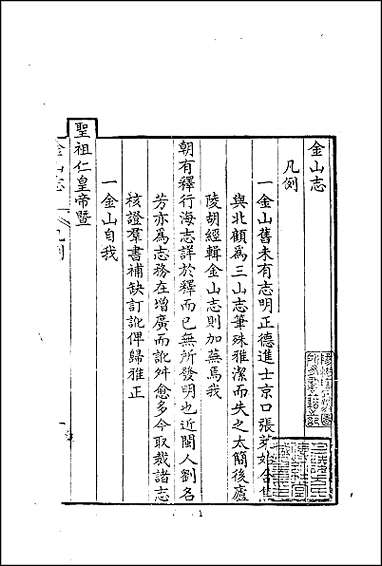 金山志
凡例
一金山舊未有志明正德進士京口張萊始合焦
與北顧為三山志筆殊雅潔而失之太簡後廬
陵胡經輯金山志則加蕪焉我
朝有釋行海志詳於釋而已無所發明也近閩人劉名
芳亦為志務在增廣而訛舛愈多今取裁諸志
核證羣書補缺訂訛俾歸雅正
一金山自我
聖祖仁皇帝暨
金山志
凡例
一